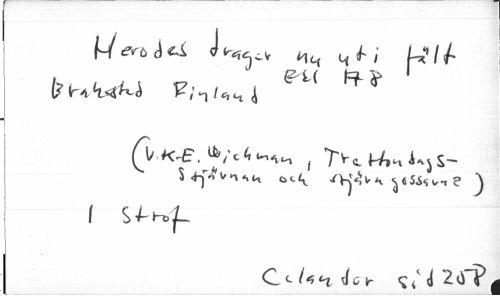 Herodes drager nu ut i fält
Brahestad Finland
(V.K.E. Wichman, Trettondags-
stjärnan och stjärngossarna)
1 strof
Celander sid 208